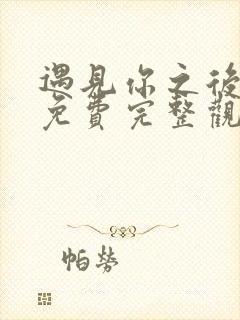 遇見你之後
免費完整觀
帕勞